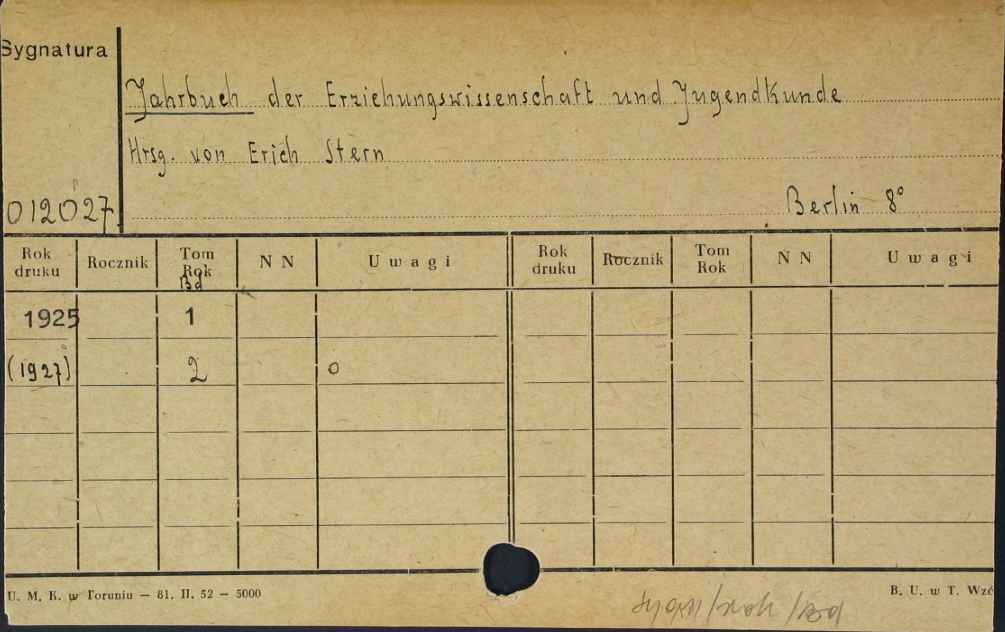 Sygnatura
Jahrbuch der Erziehungswissenschaft und Jugendkunde
Hrsg. von Erich Stern
012027
Berlin 8°
Rok druku Rocznik Tom Rok Bd N N Uwagi Rok druku Rocznik Tom Rok N N Uwagi
1925 1
(1927) 2 o
U. M. K. w Toruniu — 81. II. 52 — 5000
B. U. w T. Wzó